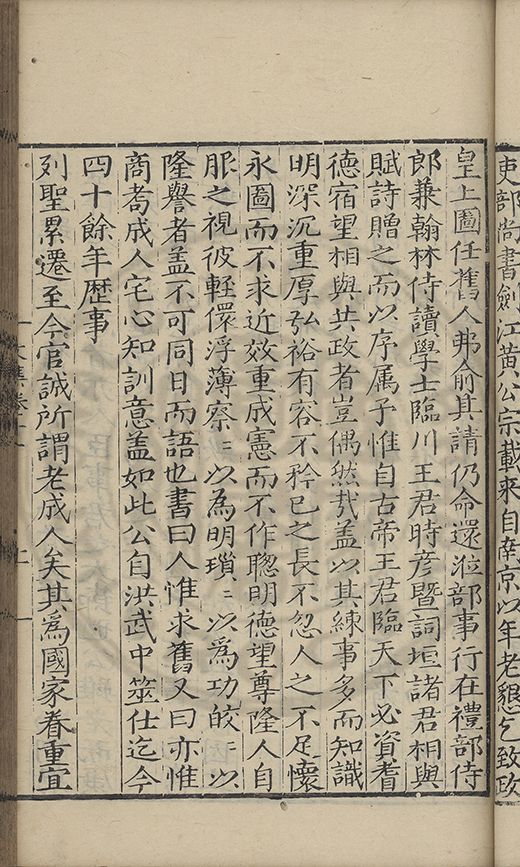 吏部尚書劍江黃公宗載来自南京以年老懇乞致政
皇上圖任舊人弗俞其請仍命還涖部事行在禮部侍
郎兼翰林侍讀學士臨川王君時彦暨詞垣諸君相與
賦詩贈之而以序属予惟自古帝王君臨天下必資耆
德宿望相與共政者豈偶然㢤盖以其練事多而知識
明深沉重厚弘裕有容不矜已之長不忽人之不足懷
永圖而不求近效重成憲而不作聦明德望尊隆人自
服之視彼輕儇浮薄察〻以為明瑣〻以為功皎〻以
隆譽者盖不可同日而語也書曰人惟求舊又曰亦惟
商耇成人宅心知訓意盖如此公自洪武中筮仕迄今
四十餘年歴事
列聖累遷至今官誠所謂老成人矣其為國家眷重宜